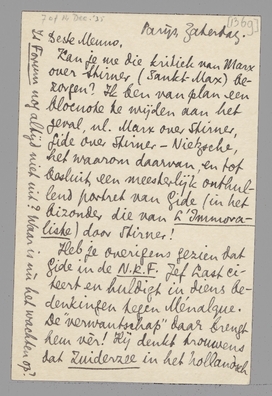 7 of 14 Dec. '35
[1369]
Parijs Zaterdag.
Beste Menno,
Kan je me die kritiek van Marx
over Stirner (Sankt-Max) be-
zorgen? Ik ben van plan een
blocnote te wijden aan het
geval, nl. Marx over Stirner,
Gide over Stirner - Nietzsche,
het waarom daarvan, en tot
besluit een meesterlijk onthul-
lend portret van Gide (in het
bizonder die van L'Immora-
liste) door Stirner!
Heb je overigens gezien dat
Gide in de N.R.F. Jef Last ci-
teert en huldigt in diens be-
denkingen tegen Ménalque.
De "verwantschap" daar brengt
hem vèr! Hij denkt trouwens
dat Zuiderzee in het hollandsch
Is Forum nog altijd niet uit? Waar is nu het wachten op?